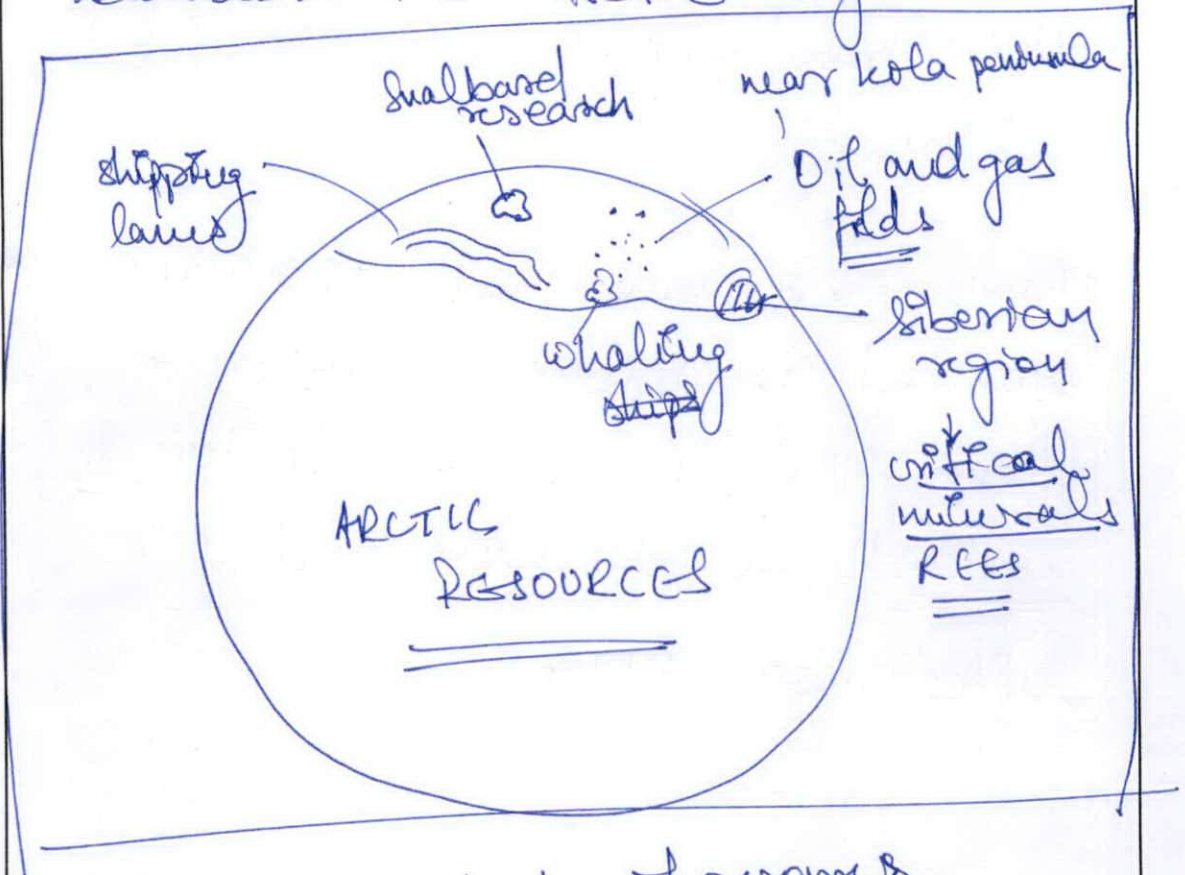 Svalbard
research
near kola penunsula
shipping
lanes
Oil and gas
filds
whaling
ships
Siberian
region
critical
minerals
REEs
ARCTIC
RESOURCES